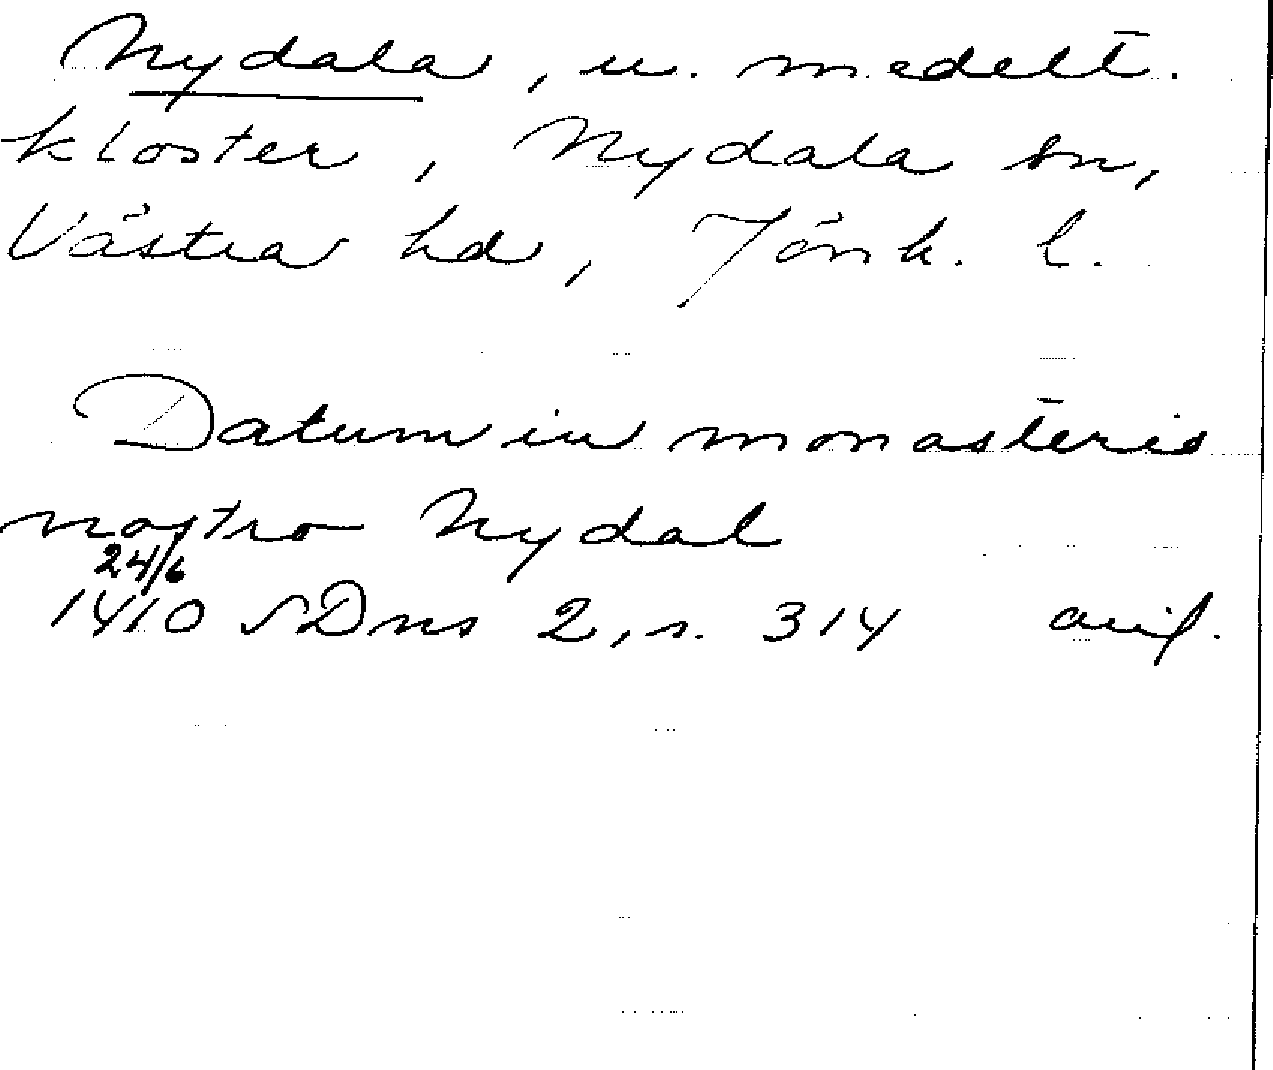 Nydala, u. medelt.
kloster, Nydala sn,
Västra hd, Jönk. l.
Datum in monasterio
nostro Nydal
24/6
1410 SDns 2, s. 314 avif.